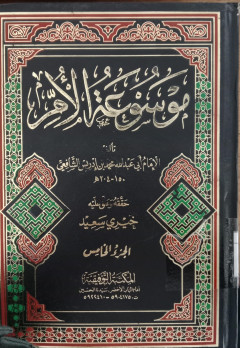 موسوعة الأمر
تأليف
الإمام أبي عبد الله محمد بن إدريس الشافعي
١٥٠-٢٠٤ هـ
حققه وعلق عليه
خيري سعيد
الجزء الخامس
المكتبة التوفيقية